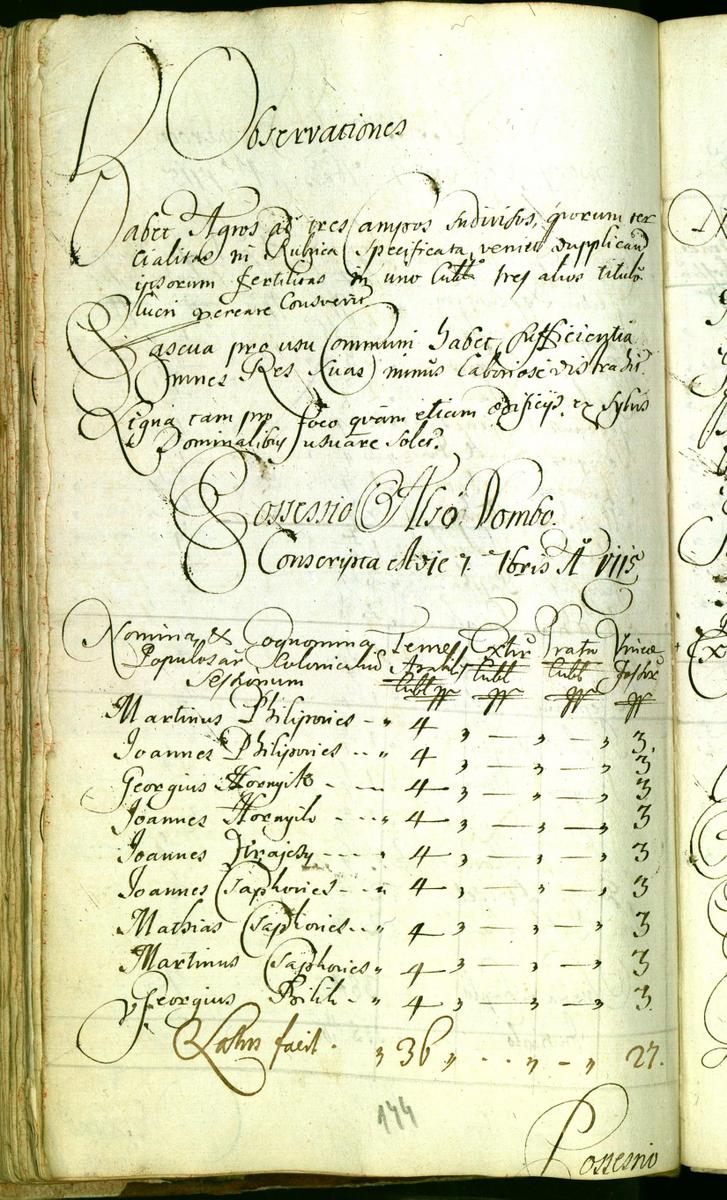 Observationes
Habet Agros ad tres Campos Indivisos, quorum ter
tialitas in Rubrica Specificata, veniet dupplicand
ipsorum fertilitas in uno Cubb tres alios titulo
lucri procreare Consvevit
Pascua pro usu Communi habet sufficientia
Omnes Res suas minus laboriose distrahit
Ligna tam pro foco quam etiam ædificijs, ex Sylvis
Dominalibus usuare solet.
Possessio Alsó Dombo.
Conscripta est die 7 7bris Aº
Nomina & Cognomina Terræ Extir Prata Vineæ
Populosar Colonicaliū Arabiles Cubb Cubb Fossor
Sessionum Cubb
Martinus Philipovics - „ 4 „ — „ — „ 3.
Joannes Philipovics - - „ 4 „ — „ — „ 3
Georgius Hornyik - — 4 „ — „ — „ 3
Joannes Hornyik - - - „ 4 „ — „ — „ 3
Joannes - - - - „ 4 „ — „ — „ 3
Joannes Csaphovics - - „ 4 „ — „ — „ 3
Mathias Csaphovics - - „ 4 „ — „ — „ 3
Martinus Csaphovics „ 4 „ — „ — „ 3
Georgius - „ 4 „ — „ — „ 3.
Latus facit . „ 36 „ - - „ - „ 27.
144
Possessio